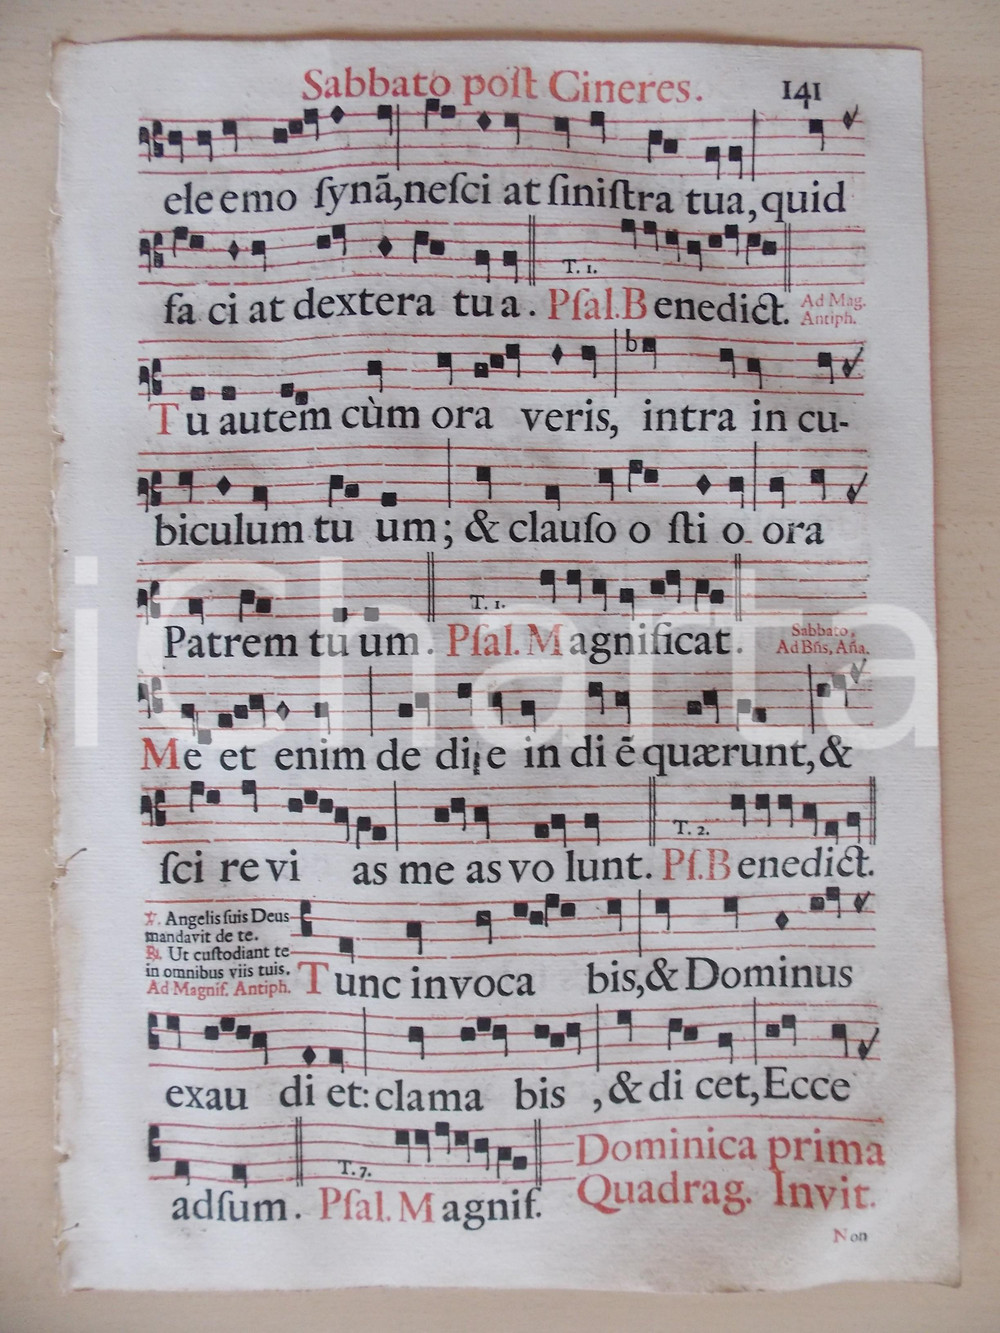 Sabbato poſt Cineres. 141
eleemo ſynā,neſci at ſiniſtra tua, quid
fa ci at dextera tua. Pſal. Benedict. Ad Mag.
Antiph.
T. 1.
b
Tu autem cùm ora veris, intra in cu-
biculum tu um; & clauſo o ſti o ora
T. 1.
Patrem tu um. Pſal. Magnificat. Sabbato,
Ad Bñs, Aña.
Me et enim de di e in di ē quærunt, &
ſci re vi as me as vo lunt. Pſ. Benedict.
T. 2.
℣. Angelis ſuis Deus
mandavit de te.
℟. Ut cuſtodiant te
in omnibus viis tuis.
Ad Magnif. Antiph.
Tunc invoca bis, & Dominus
exau di et: clama bis , & di cet, Ecce
T. 7.
adſum. Pſal. Magnif.
Dominica prima
Quadrag. Invit.
Non
iCharta